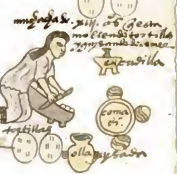 muchacha de. xiij. años q̃ esta
moliendo tortillas
y guisando de comer
escudilla
comal.
tortillas
olla